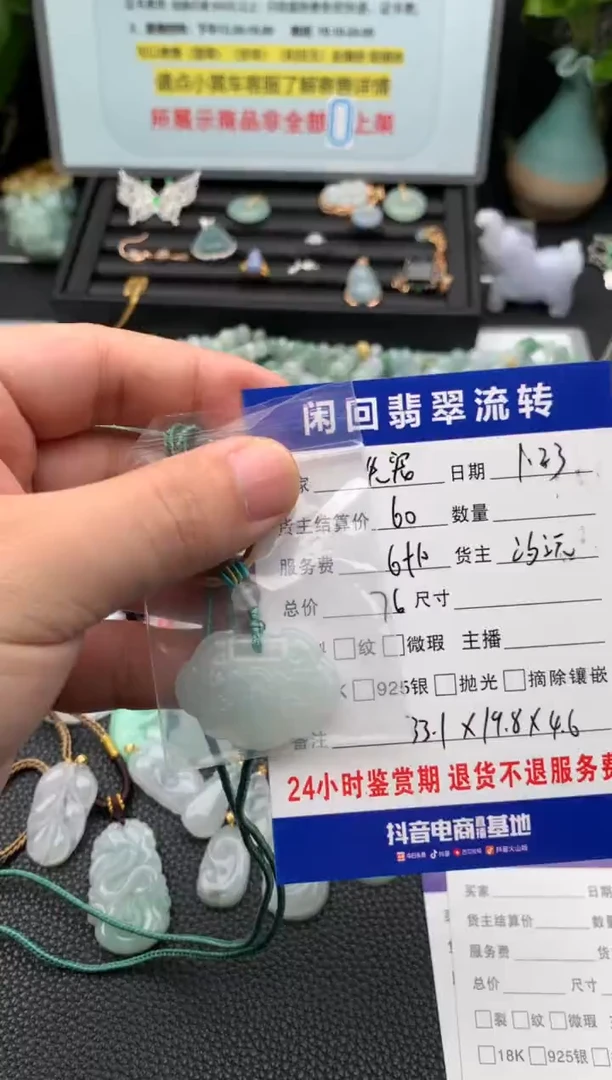 请点小黄车客服了解套餐详情
所展示商品非全部 上架
闲回翡翠流转
家 日期 1.23
货主结算价 60 数量
服务费 6 货主
总价 76 尺寸
纹 微瑕 主播
K 925银 抛光 摘除镶嵌
备注 33.1×19.8×4.6
24小时鉴赏期 退货不退服务费
抖音电商直播基地
今日头条 抖音 西瓜视频 抖音火山版
买家 日期
货主结算价 数量
服务费 货
总价 尺寸
裂 纹 微瑕
18K 925银